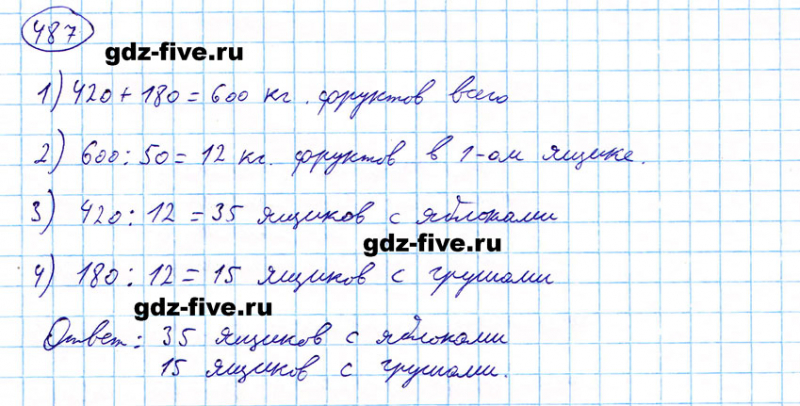 487
gdz-five.ru
1) 420 + 180 = 600 кг. фруктов всего
2) 600 : 50 = 12 кг. фруктов в 1-ом ящике.
3) 420 : 12 = 35 ящиков с яблоками
gdz-five.ru
4) 180 : 12 = 15 ящиков с грушами
gdz-five.ru
Ответ: 35 ящиков с яблоками
15 ящиков с грушами.